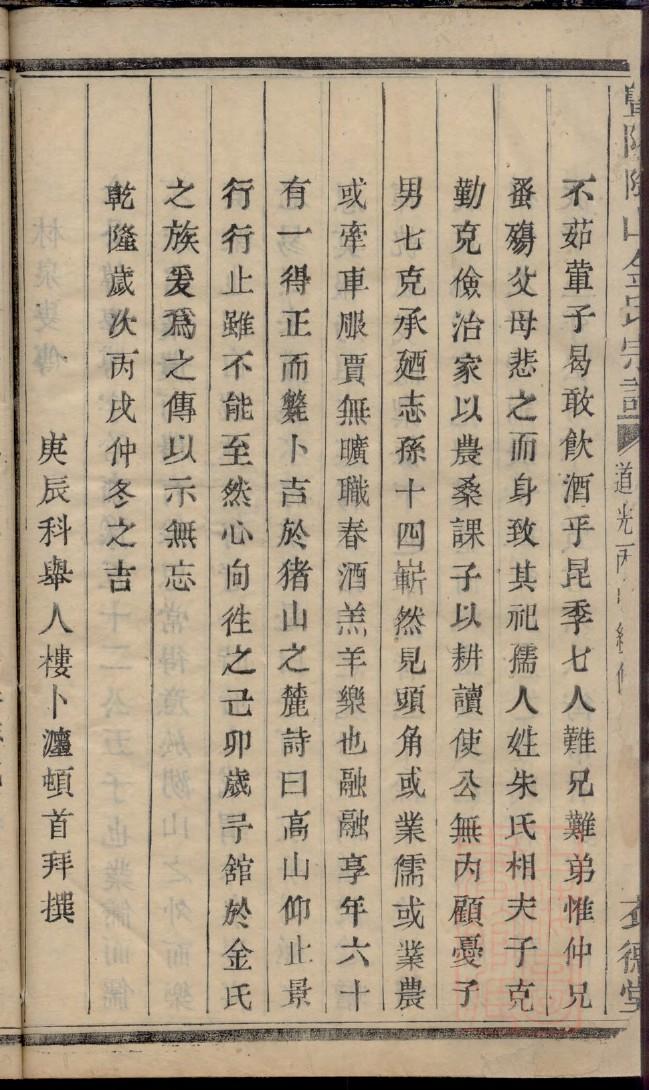 不茹葷子曷敢飲酒乎昆季七人難兄難弟惟仲兄
蚤殤父母悲之而身致其祀孺人姓朱氏相夫子克
勤克儉治家以農桑課子以耕讀使公無內顧憂子
男七克承廼志孫十四嶄然見頭角或業儒或業農
或牽車服賈無曠職春酒羔羊樂也融融享年六十
有一得正而斃卜吉於猪山之麓詩曰高山仰止景
行行止雖不能至然心向徃之己卯歲予舘於金氏
之族爰爲之傳以示無忘
乾隆歲次丙戌仲冬之吉
庚辰科舉人樓卜瀍頓首拜撰